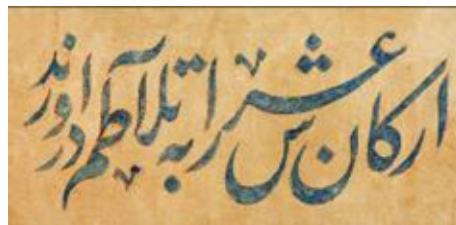 ارکان عرش را به تلاطم درآورند